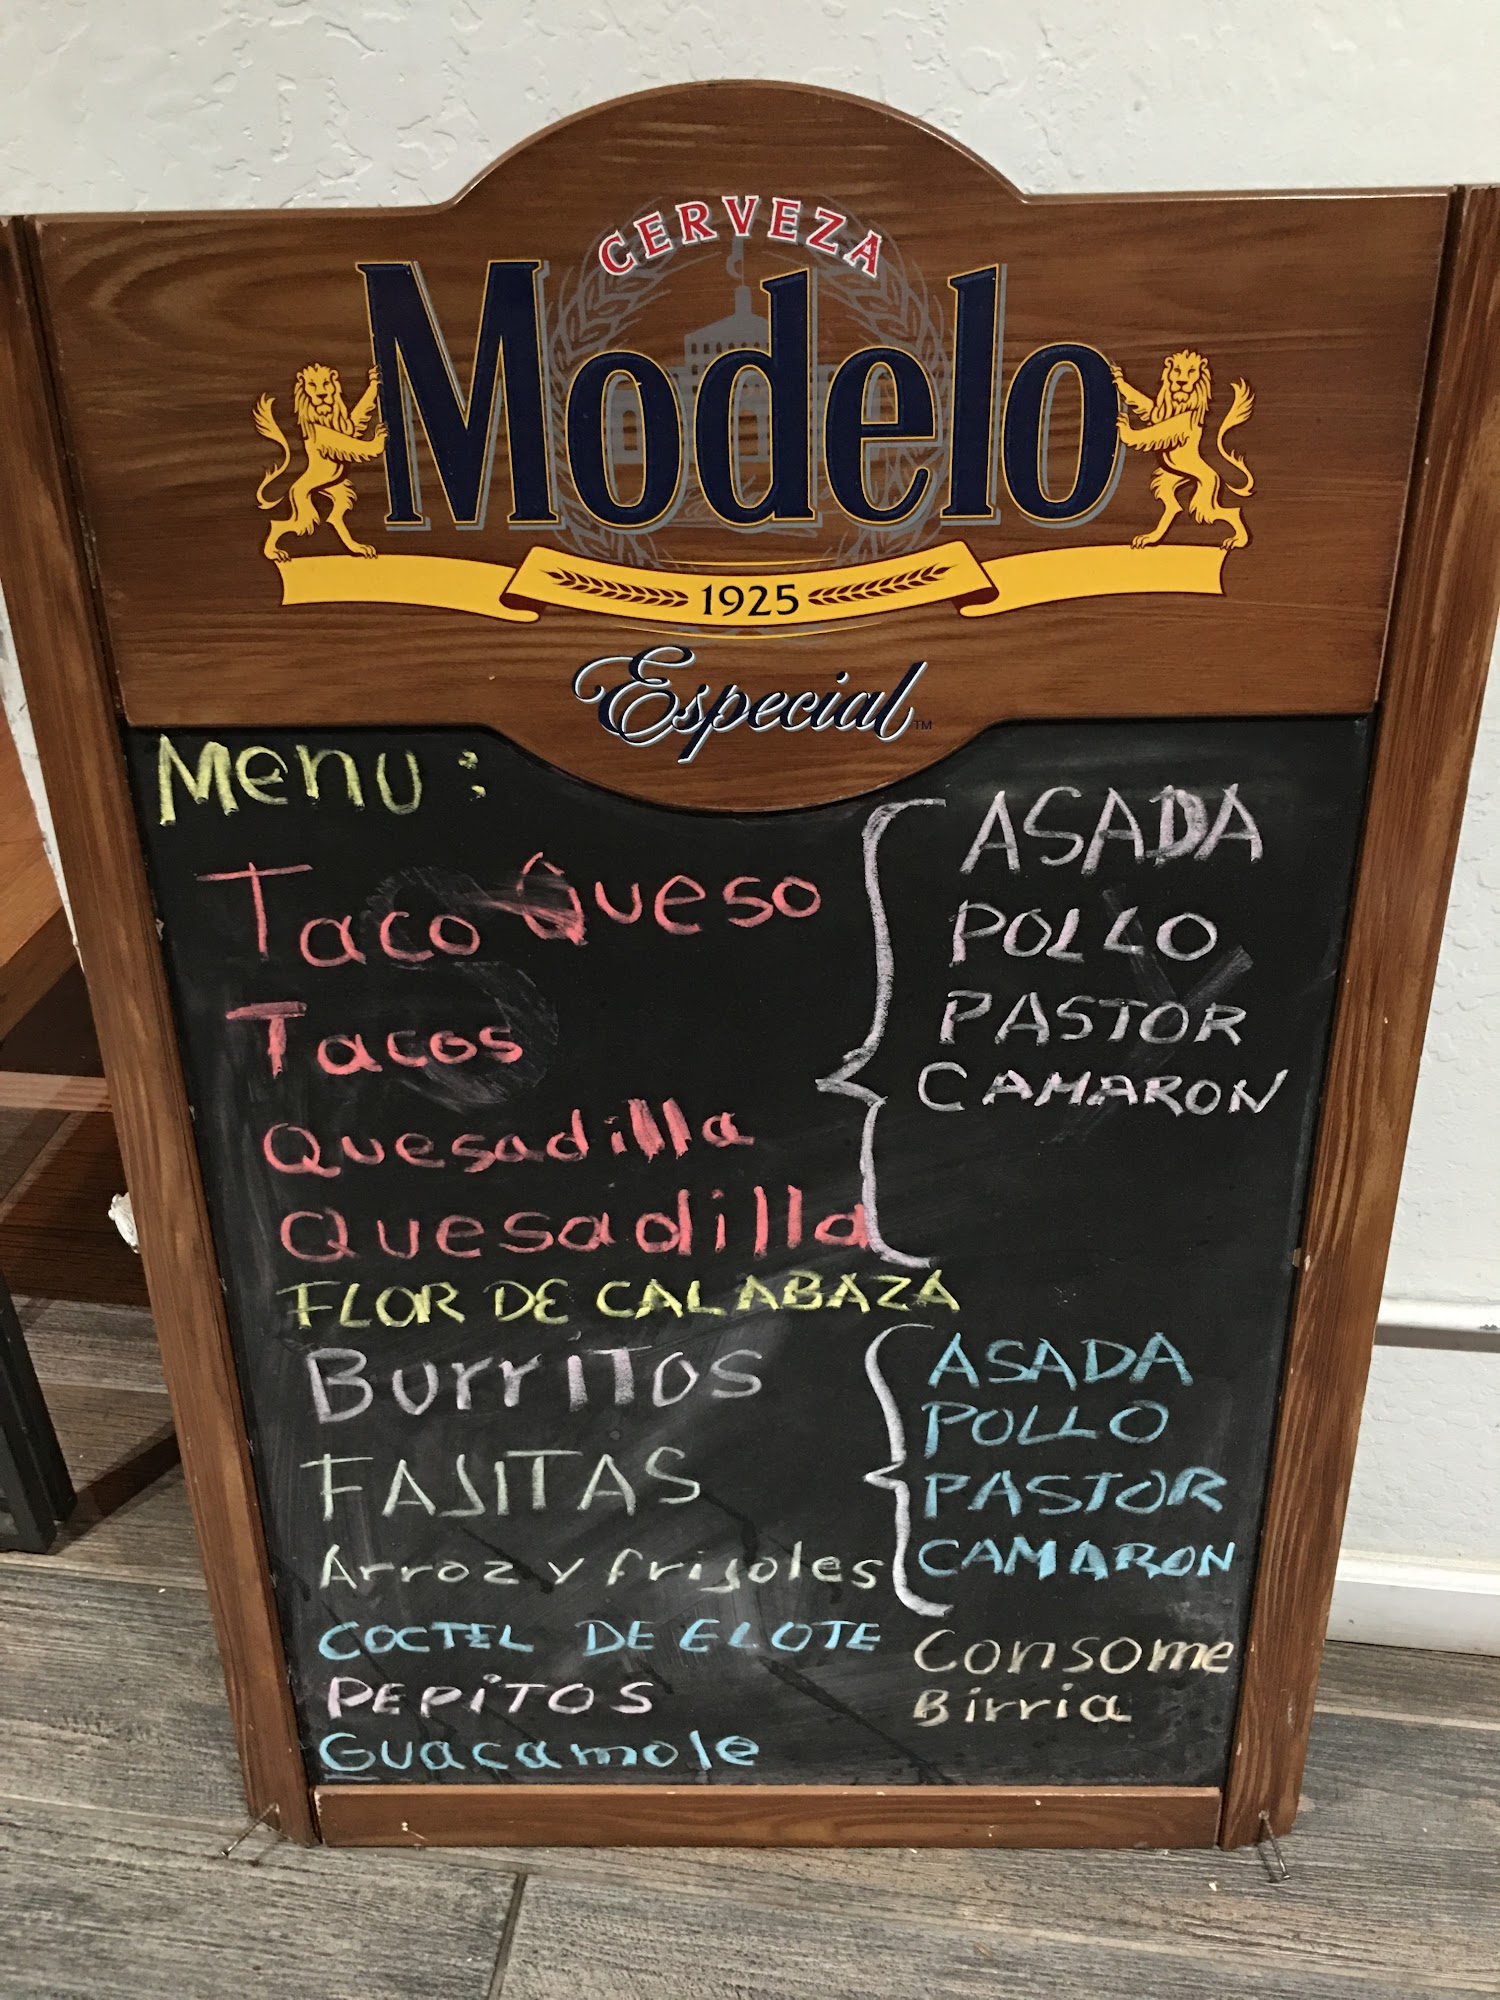 CERVEZA
Modelo
1925
Especial™
Menu:
Taco Queso
Tacos
Quesadilla
Quesadilla
FLOR DE CALABAZA
Burritos
FAJITAS
Arroz y frijoles
COCTEL DE ELOTE
PEPITOS
Guacamole
ASADA
POLLO
PASTOR
CAMARON
ASADA
POLLO
PASTOR
CAMARON
Consome
Birria